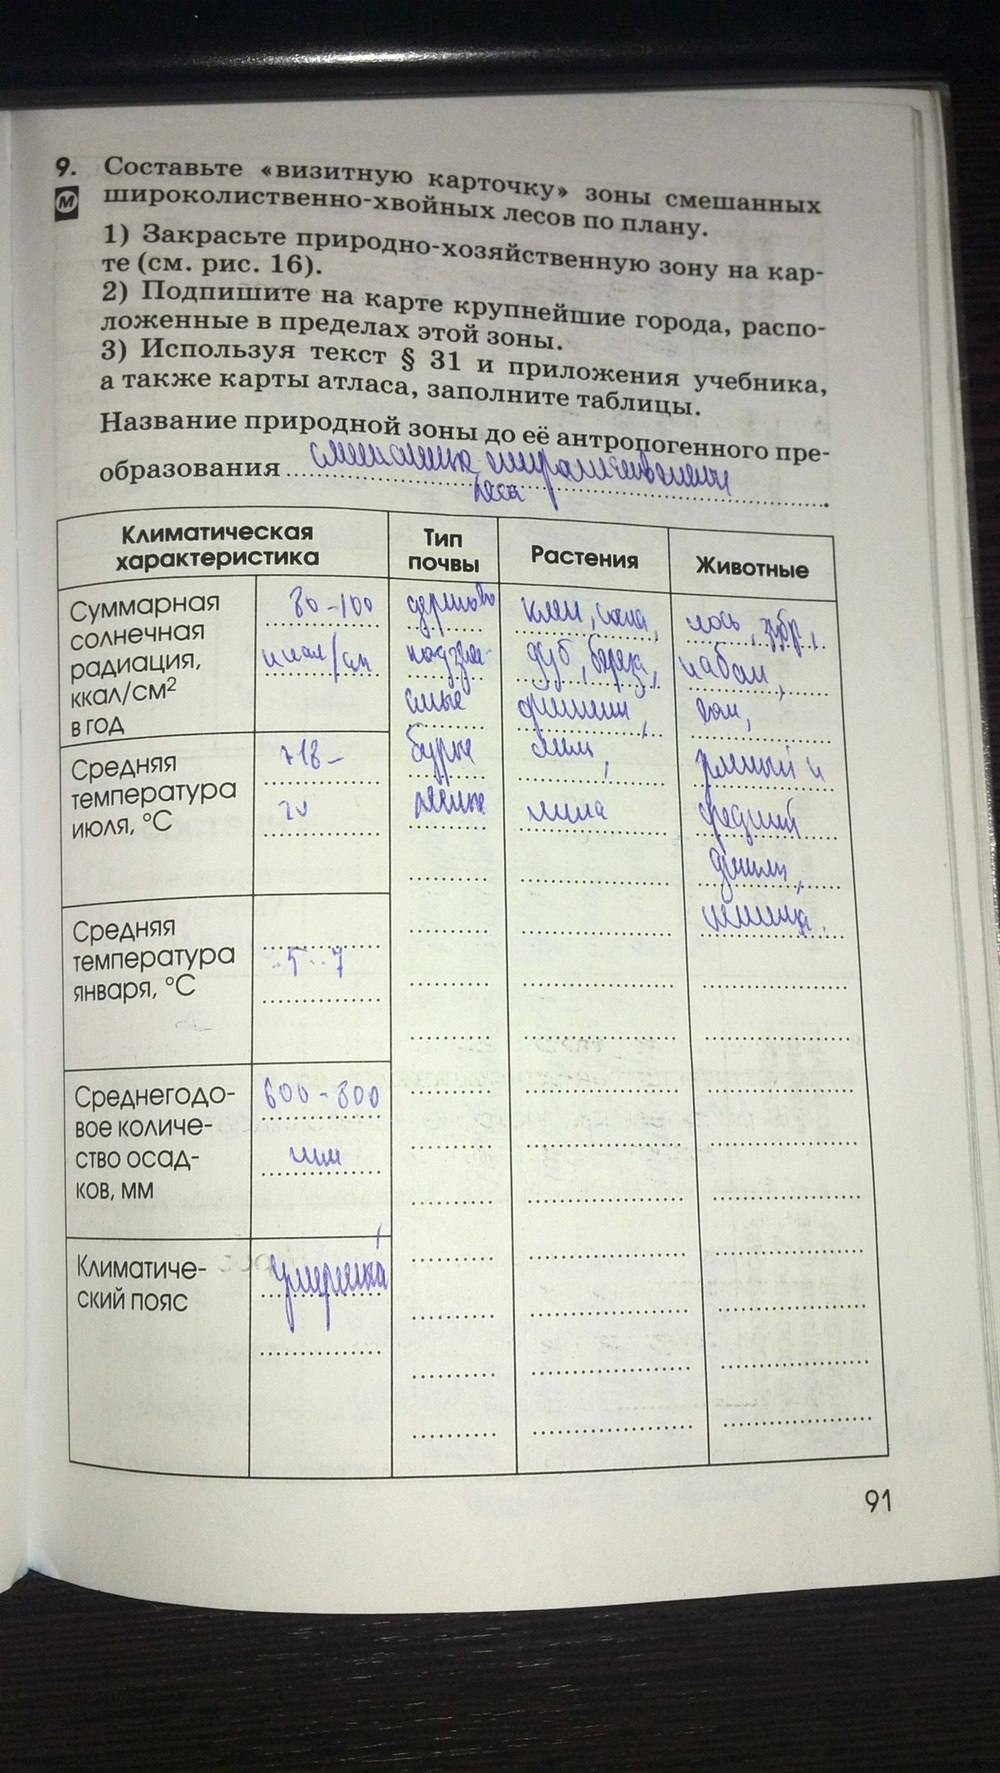 9. Составьте «визитную карточку» зоны смешанных
М широколиственно-хвойных лесов по плану.
1) Закрасьте природно-хозяйственную зону на кар-
те (см. рис. 16).
2) Подпишите на карте крупнейшие города, распо-
ложенные в пределах этой зоны.
3) Используя текст § 31 и приложения учебника,
а также карты атласа, заполните таблицы.
Название природной зоны до её антропогенного пре-
образования
леса
Климатическая
характеристика
Тип
почвы
Растения
Животные
Суммарная
солнечная
радиация,
ккал/см²
в год
80-100
ккал/см
Средняя
температура
июля, °С
+18-
20
Средняя
температура
января, °С
-5 -7
Среднегодо-
вое количе-
ство осад-
ков, мм
600-800
мм
Климатиче-
ский пояс
дерново
подзо-
листые
бурые
лесные
клен, сосна,
дуб, береза,
липа
лось, зубр,
кабан,
и
средний
91